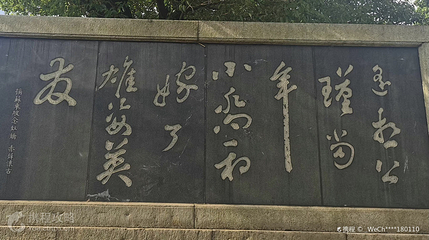 遥想公
瑾当
年
小乔初
嫁了
雄姿英
发
携程攻略
携程 © _WeCh****180110